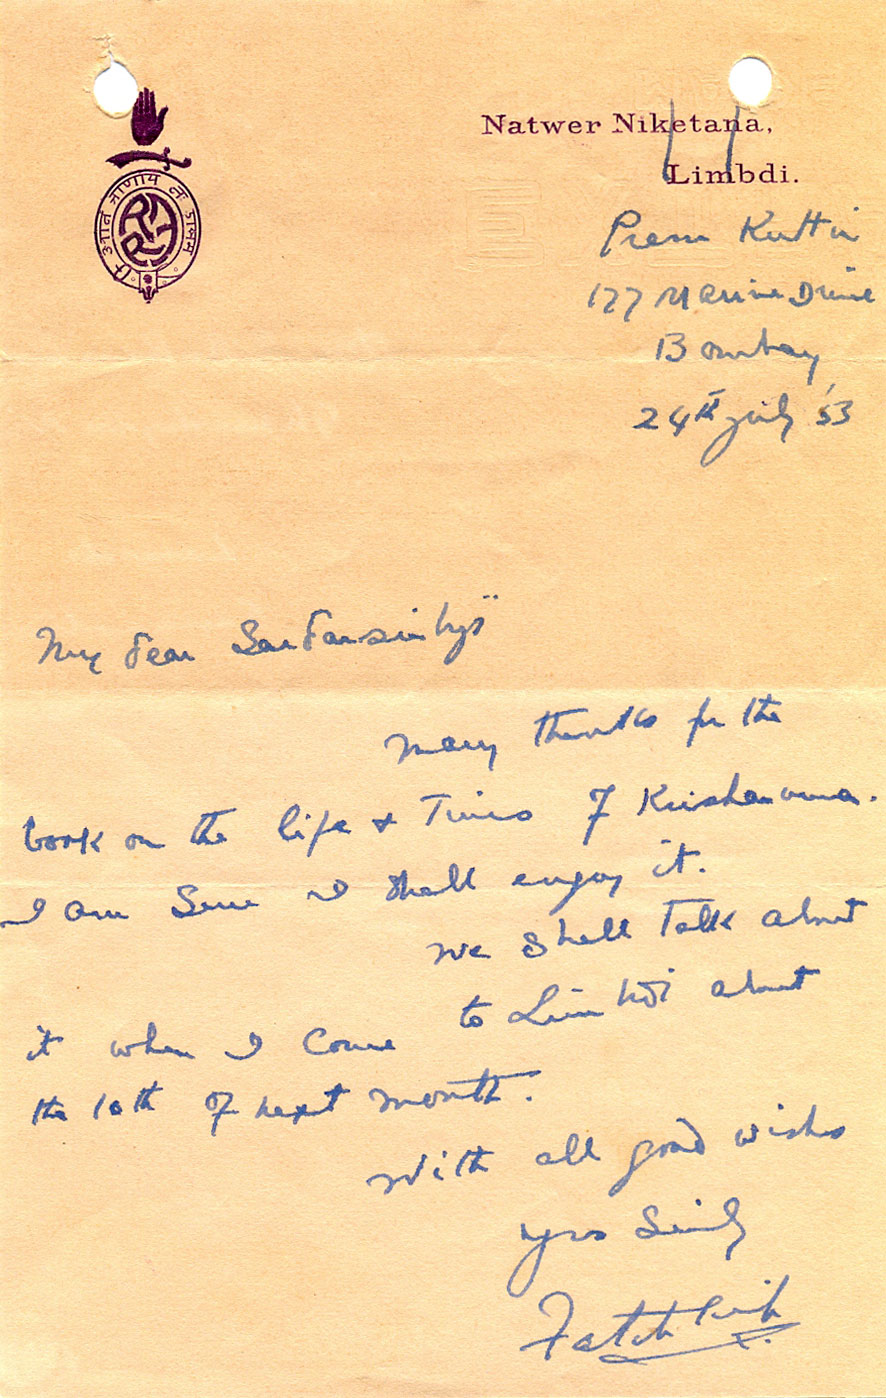 Natwer Niketana,
Limbdi.
Prem Kuttir
177 Marine Drive
Bombay
24th July '53
My dear Sardarsinhji
Many thanks for the
book on the life & Times of Krishnavarma.
I am sure I shall enjoy it.
We shall Talk about
it when I come to Limbdi about
the 10th of next month.
With all good wishes
Yrs Sincly
Fatehsinh